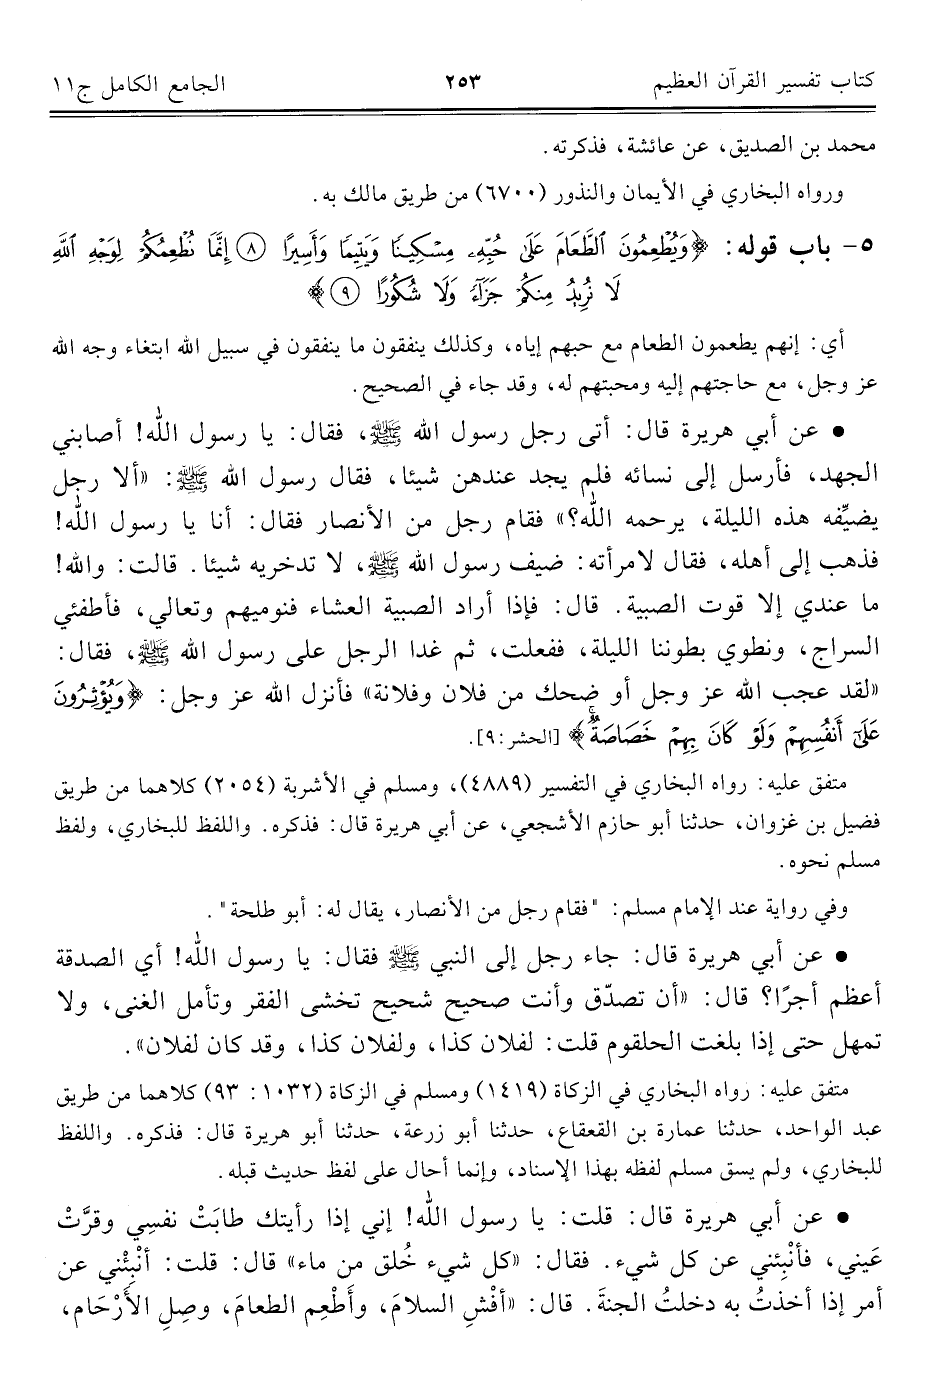 كتاب تفسير القرآن العظيم ٢٥٣ الجامع الكامل ج١١
محمد بن الصديق، عن عائشة، فذكرته.
ورواه البخاري في الأيمان والنذور (٦٧٠٠) من طريق مالك به.
٥- باب قوله: ﴿وَيُطْعِمُونَ الطَّعَامَ عَلَىٰ حُبِّهِۦ مِسْكِينًا وَيَتِيمًا وَأَسِيرًا ٨ إِنَّمَا نُطْعِمُكُمْ لِوَجْهِ اللَّهِ
لَا نُرِيدُ مِنكُمْ جَزَآءً وَلَا شُكُورًا ٩﴾
أي: إنهم يطعمون الطعام مع حبهم إياه، وكذلك ينفقون ما ينفقون في سبيل الله ابتغاء وجه الله
عز وجل، مع حاجتهم إليه ومحبتهم له، وقد جاء في الصحيح.
• عن أبي هريرة قال: أتى رجل رسول الله ﷺ، فقال: يا رسول الله! أصابني
الجهد، فأرسل إلى نسائه فلم يجد عندهن شيئا، فقال رسول الله ﷺ: «ألا رجل
يضيِّفه هذه الليلة، يرحمه الله؟» فقام رجل من الأنصار فقال: أنا يا رسول الله!
فذهب إلى أهله، فقال لامرأته: ضيف رسول الله ﷺ، لا تدخريه شيئا. قالت: والله!
ما عندي إلا قوت الصبية. قال: فإذا أراد الصبية العشاء فنوميهم وتعالي، فأطفئي
السراج، ونطوي بطوننا الليلة، ففعلت، ثم غدا الرجل على رسول الله ﷺ، فقال:
«لقد عجب الله عز وجل أو ضحك من فلان وفلانة» فأنزل الله عز وجل: ﴿وَيُؤْثِرُونَ
عَلَىٰٓ أَنفُسِهِمْ وَلَوْ كَانَ بِهِمْ خَصَاصَةٌۚ﴾ [الحشر: ٩].
متفق عليه: رواه البخاري في التفسير (٤٨٨٩)، ومسلم في الأشربة (٢٠٥٤) كلاهما من طريق
فضيل بن غزوان، حدثنا أبو حازم الأشجعي، عن أبي هريرة قال: فذكره. واللفظ للبخاري، ولفظ
مسلم نحوه.
وفي رواية عند الإمام مسلم: "فقام رجل من الأنصار، يقال له: أبو طلحة".
• عن أبي هريرة قال: جاء رجل إلى النبي ﷺ فقال: يا رسول الله! أي الصدقة
أعظم أجرًا؟ قال: «أن تصدّق وأنت صحيح شحيح تخشى الفقر وتأمل الغنى، ولا
تمهل حتى إذا بلغت الحلقوم قلت: لفلان كذا، ولفلان كذا، وقد كان لفلان».
متفق عليه: رواه البخاري في الزكاة (١٤١٩) ومسلم في الزكاة (١٠٣٢: ٩٣) كلاهما من طريق
عبد الواحد، حدثنا عمارة بن القعقاع، حدثنا أبو زرعة، حدثنا أبو هريرة قال: فذكره. واللفظ
للبخاري، ولم يسق مسلم لفظه بهذا الإسناد، وإنما أحال على لفظ حديث قبله.
• عن أبي هريرة قال: قلت: يا رسول الله! إني إذا رأيتك طابَتْ نفسِي وقرَّتْ
عَيني، فأنْبِئني عن كل شيء. فقال: «كل شيء خُلق من ماء» قال: قلت: أنْبِئْني عن
أمر إذا أخذتُ به دخلتُ الجنةَ. قال: «أفْشِ السلامَ، وأَطْعِم الطعامَ، وصِلِ الأَرْحَام،